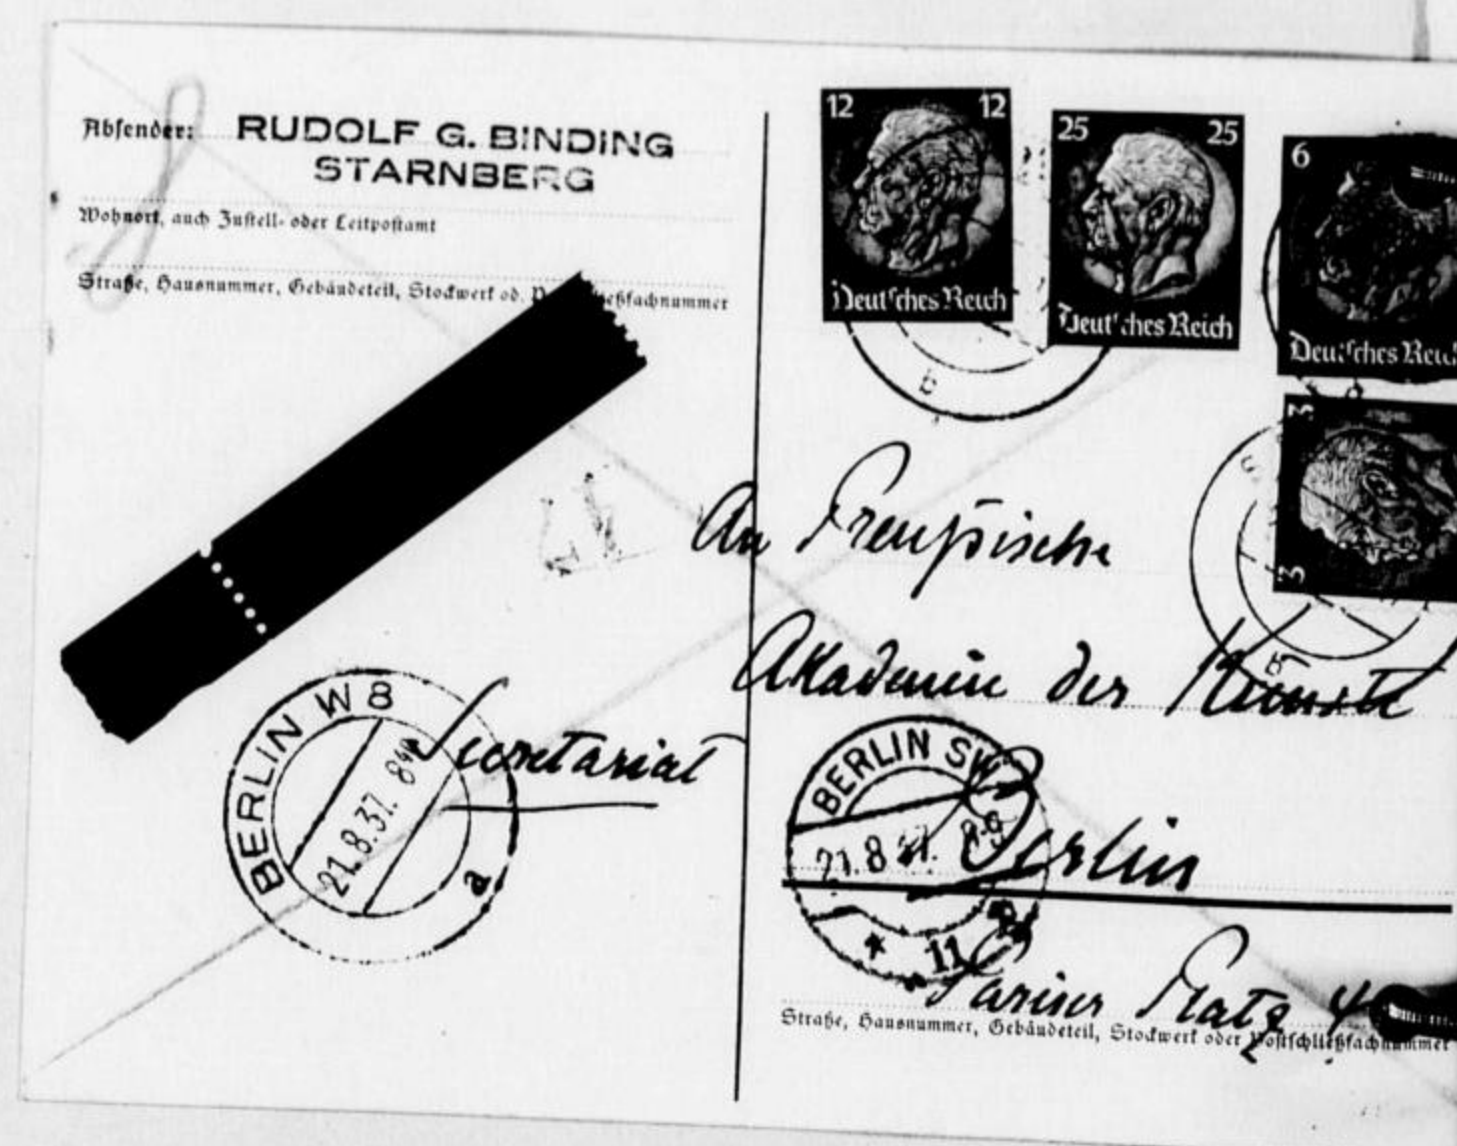 Absender: RUDOLF G. BINDING
STARNBERG
Wohnort, auch Zustell- oder Leitpostamt
Straße, Hausnummer, Gebäudeteil, Stockwerk od. P eßfachnummer
12 12
Deutsches Reich
25 25
Deutsches Reich
6
Deutsches Reich
3
3
b
An Preußische
Akademie der Künste
Secretariat
BERLIN W 8
21.8.37. 8
a
BERLIN SW
21.8.37. 8-9
* 11
Berlin
Pariser Platz 4
Straße, Hausnummer, Gebäudeteil, Stockwerk oder Postschließfachnummer